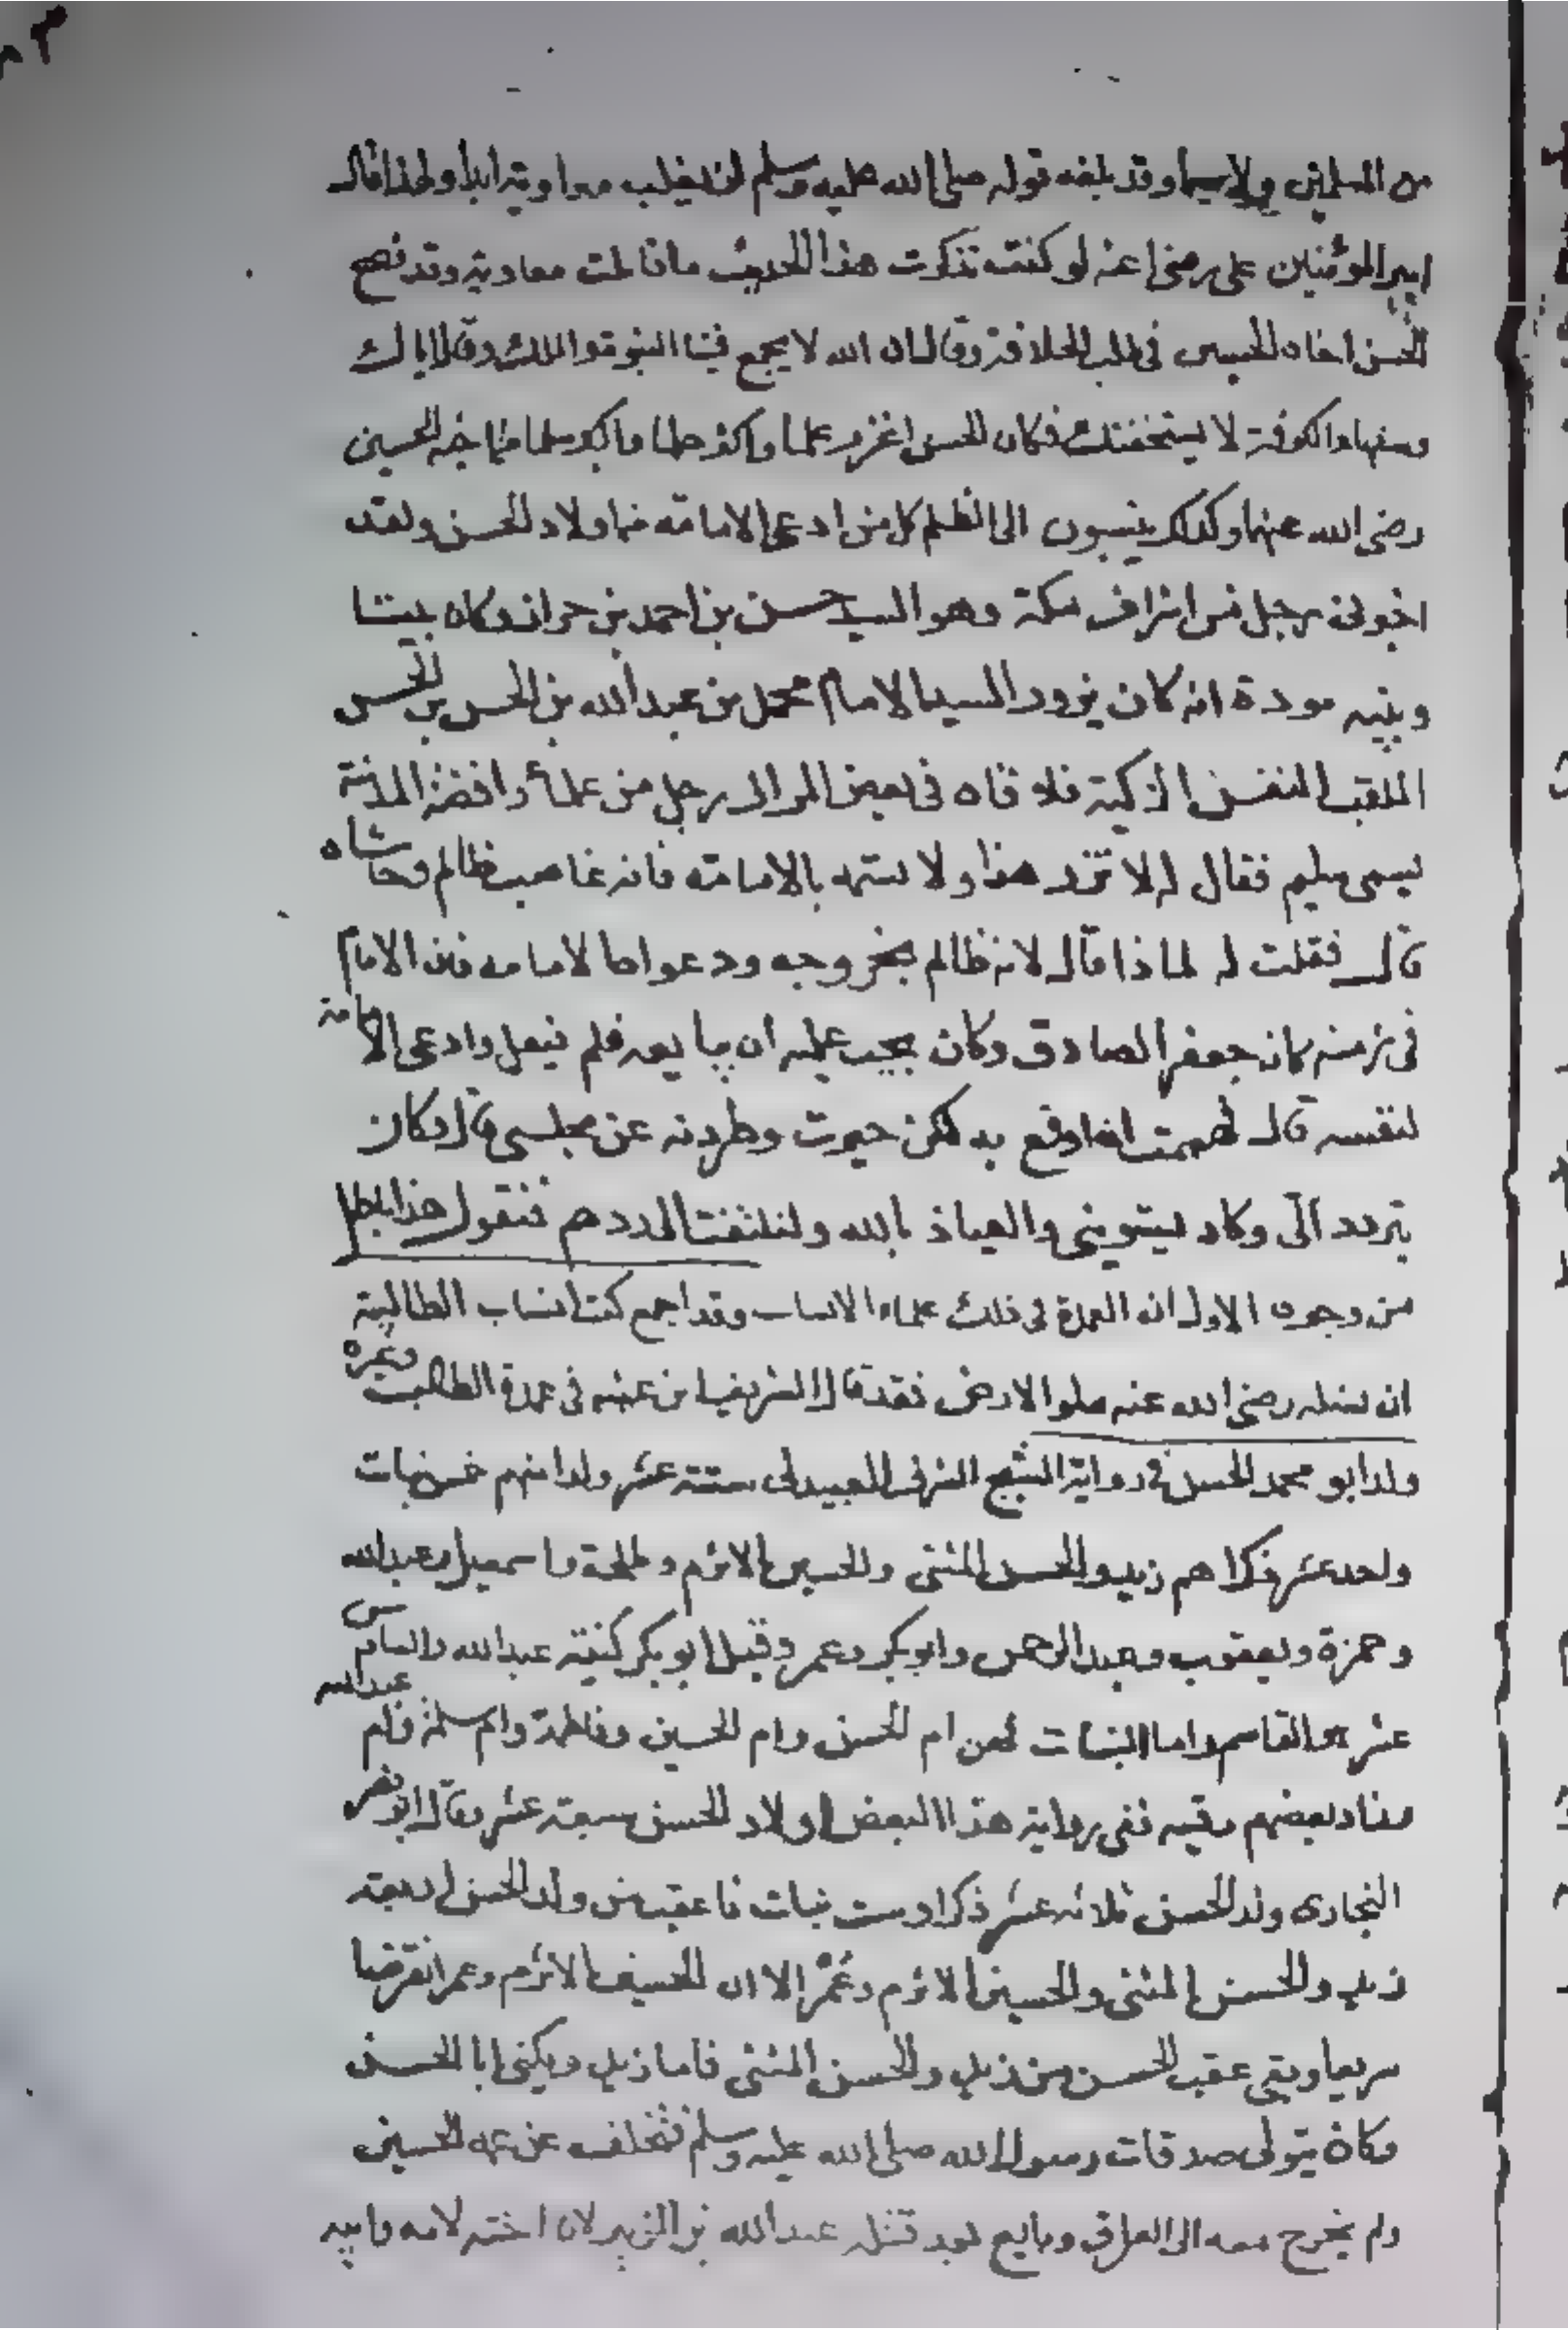 من المسلمين ولاسيما وقد بلغه قوله صلى الله عليه وسلم لن يغلب معاوية ابدا ولهذا قال
امير المؤمنين على رضى اعنه لو كنت تذكرت هذا الحديث ما قاتلت معاوية وقد نصح
الحسن اخاه الحسين فى طلب الخلافة وقال ان الله لا يجمع فينا النبوة والملك وقال اياك
وسفهاء الكوفة لا يستخفنك فكان الحسن اغزر علما واكثر حلما واكبر سلما من اخيه الحسين
رضى الله عنهما وكذلك ينسبون الى الظلم كل من ادعى الامامة من اولاد الحسن ولقد
اخبرنى رجل من اشراف مكة وهو السيد حسن بن احمد بن حراز وكان بيننا
وبينه مودة انه كان يزور السيد الامام محمد بن عبد الله بن الحسن بن الحسن
الملقب النفس الزكية فلاقاه فى بعض المرار رجل من علماء رافضة المدينة
يسمى سليم فقال له لا تزر هذا ولا تسمه بالامامة فانه غاصب ظالم وحاشاه
قال فقلت له لماذا قال لانه ظالم بخروجه ودعواه الامامه فان الامام
فى زمنه كان جعفر الصادق وكان يجب عليه ان يبايعه فلم يفعل وادعى الامامة
لنفسه قال فهممت ان اوقع به لكن صبرت وطردته عن مجلسى قال وكان
يتردد الى وكاد يستويني والعياذ بالله ولنلتفت الى ردهم فنقول هذا باطل
من وجوه الاول ان العمدة فى ذلك علماء الانساب وقد اجمع كتب انساب الطالبية
ان نسله رضى الله عنه ملوا الارض فقد قال الشريف ابن عنبه فى عمدة الطالب وغيره
ولد ابو محمد الحسن فى رواية الشيخ الشرفى العبيدلى ستة عشر ولدا منهم خمس بنات
واحد عشر ذكرا هم زيد والحسن المثنى والحسين الاثرم وطلحة واسمعيل وعبد الله
وحمزة ويعقوب وعبد الرحمن وابو بكر وعمر وقيل ابو بكر كنية عبد الله والسادس
عشر هو القاسم واما البنات فهن ام الحسن وام الحسين وفاطمة وام سلمة وام عبد الله
وزاد بعضهم رقيه ففى رواية هذا البعض اولاد الحسن سبعة عشر وقال ابو نصر
البخارى ولد الحسن ثلاثه عشر ذكرا وست بنات فاعقب من ولد الحسن اربعة
زيد والحسن المثنى والحسين الاثرم وعمر إلا ان الحسين الاثرم وعمر انقرضا
سريعا وبقى عقب الحسن من زيد والحسن المثنى فاما زيد ويكنى ابا الحسن
وكان يتولى صدقات رسول الله صلى الله عليه وسلم فتخلف عن عمه الحسين
ولم يخرج معه الى العراق وبايع بعد قتله عبد الله بن الزبير لان اخته لامه وابيه